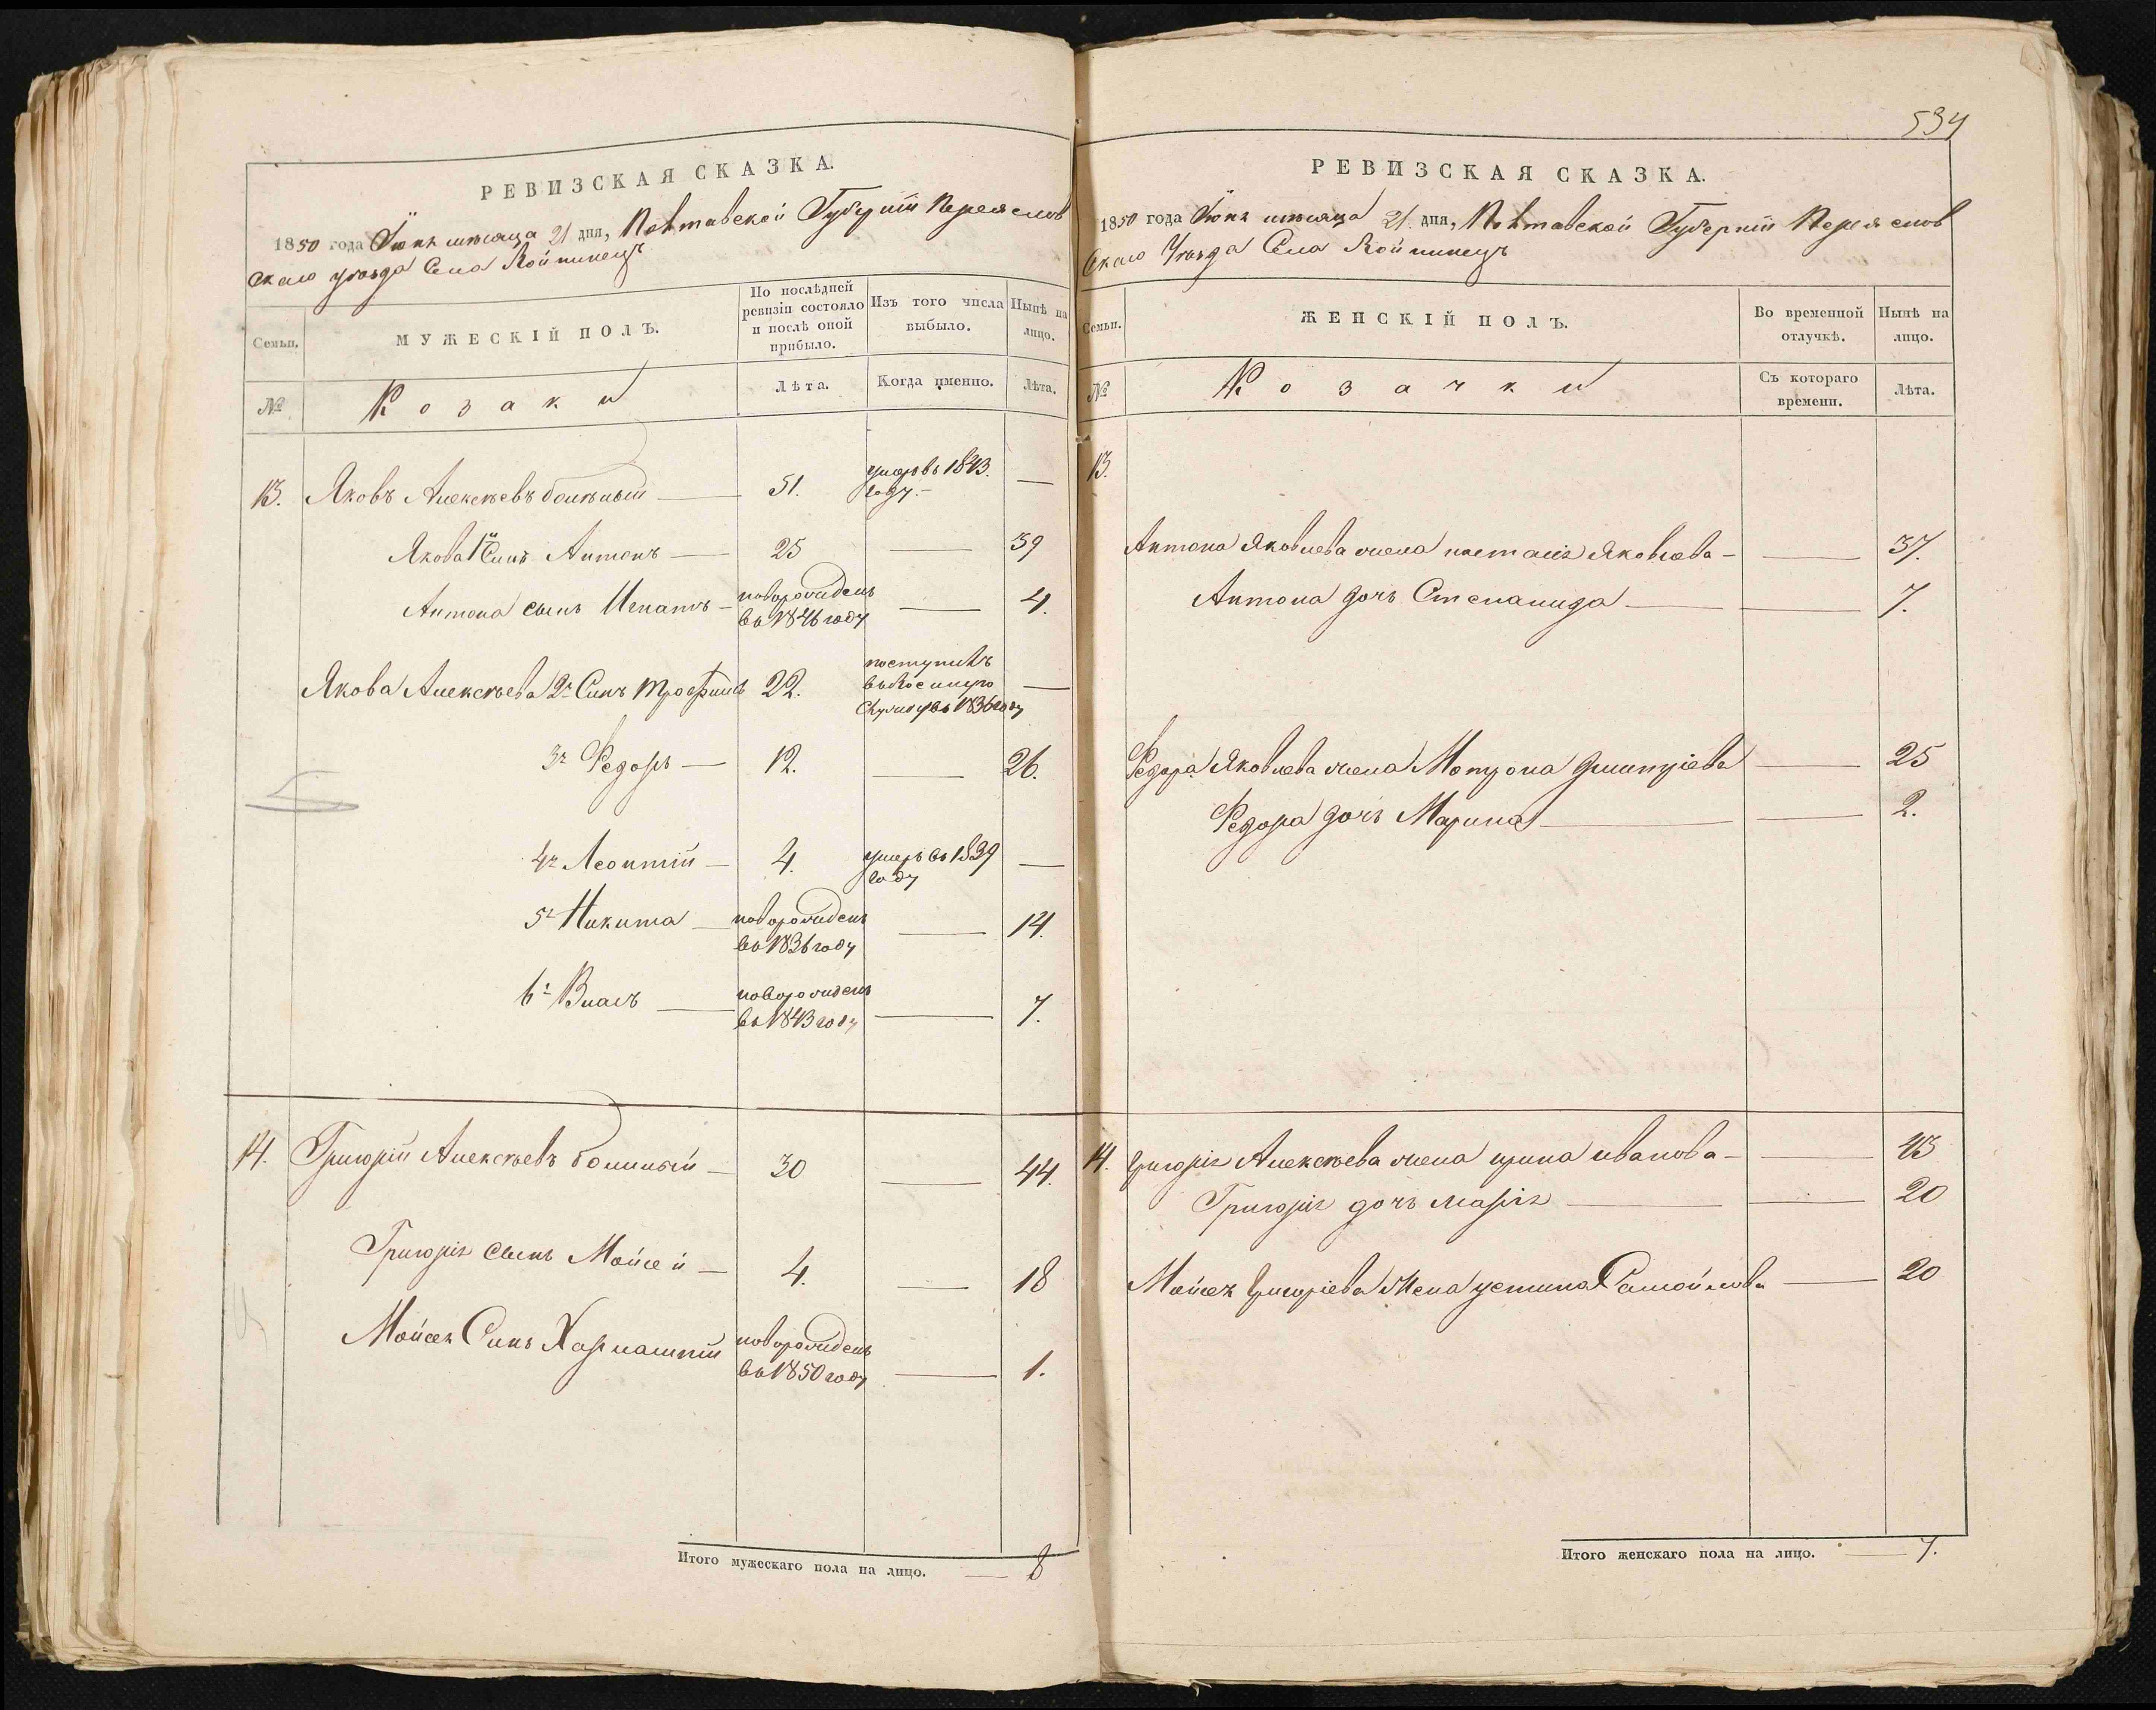 РЕВИЗСКАЯ СКАЗКА.
1850 года Іюня мѣсяца 21 дня, Полтавской Губерніи Переяслов
скаго уѣзда Села Койлинецъ
Семьи.
МУЖЕСКІЙ ПОЛЪ.
По послѣдней
ревизіи состояло
и послѣ оной
прибыло.
Изъ того числа
выбыло.
Нынѣ на
лицо.
№
Козаки
Лѣта.
Когда именно.
Лѣта.
13. Яковъ Алексѣевъ 51. умеръ въ 1843.
году. —
Якова 1й Синъ Антонъ — 25 — 39
Антона сынъ Игнатъ — новорожденъ — 4.
въ 1846 году
Якова Алексѣева 2й Синъ Трофимъ 22. поступилъ
въ 1836 году
3й Федоръ — 12. — 26.
4й Леонтій — 4. умеръ въ 1839 —
году
5й Никита — новорожденъ — 14.
въ 1836 году
6й Власъ — новорожденъ — 7.
въ 1843 году
14. Григорій Алексѣевъ — 30 — 44.
Григорія сынъ Мойсей — 4. — 18
Мойсея Синъ Харлампій новорожденъ — 1.
въ 1850 году
Итого мужескаго пола на лицо. — 8
534
РЕВИЗСКАЯ СКАЗКА.
1850 года Іюня мѣсяца 21. дня, Полтавской Губерніи Переяслов
скаго Уѣзда Села Койлинецъ
Семьи.
ЖЕНСКІЙ ПОЛЪ.
Во временной
отлучкѣ.
Нынѣ на
лицо.
№
Козачки
Съ котораго
времени.
Лѣта.
13.
Антона Яковлева жена настасія Яковлева — — 37.
Антона дочъ Степанида — — 7.
Федора Яковлева жена Мотрона дмитріева — 25
Федора дочъ Марина — — 2.
14. Григорія Алексѣева жена ирина иванова — — 43
Григорія дочъ марія — — 20
Мойсея Григоріева жена устина Самойлова — 20
Итого женскаго пола на лицо. — 7.